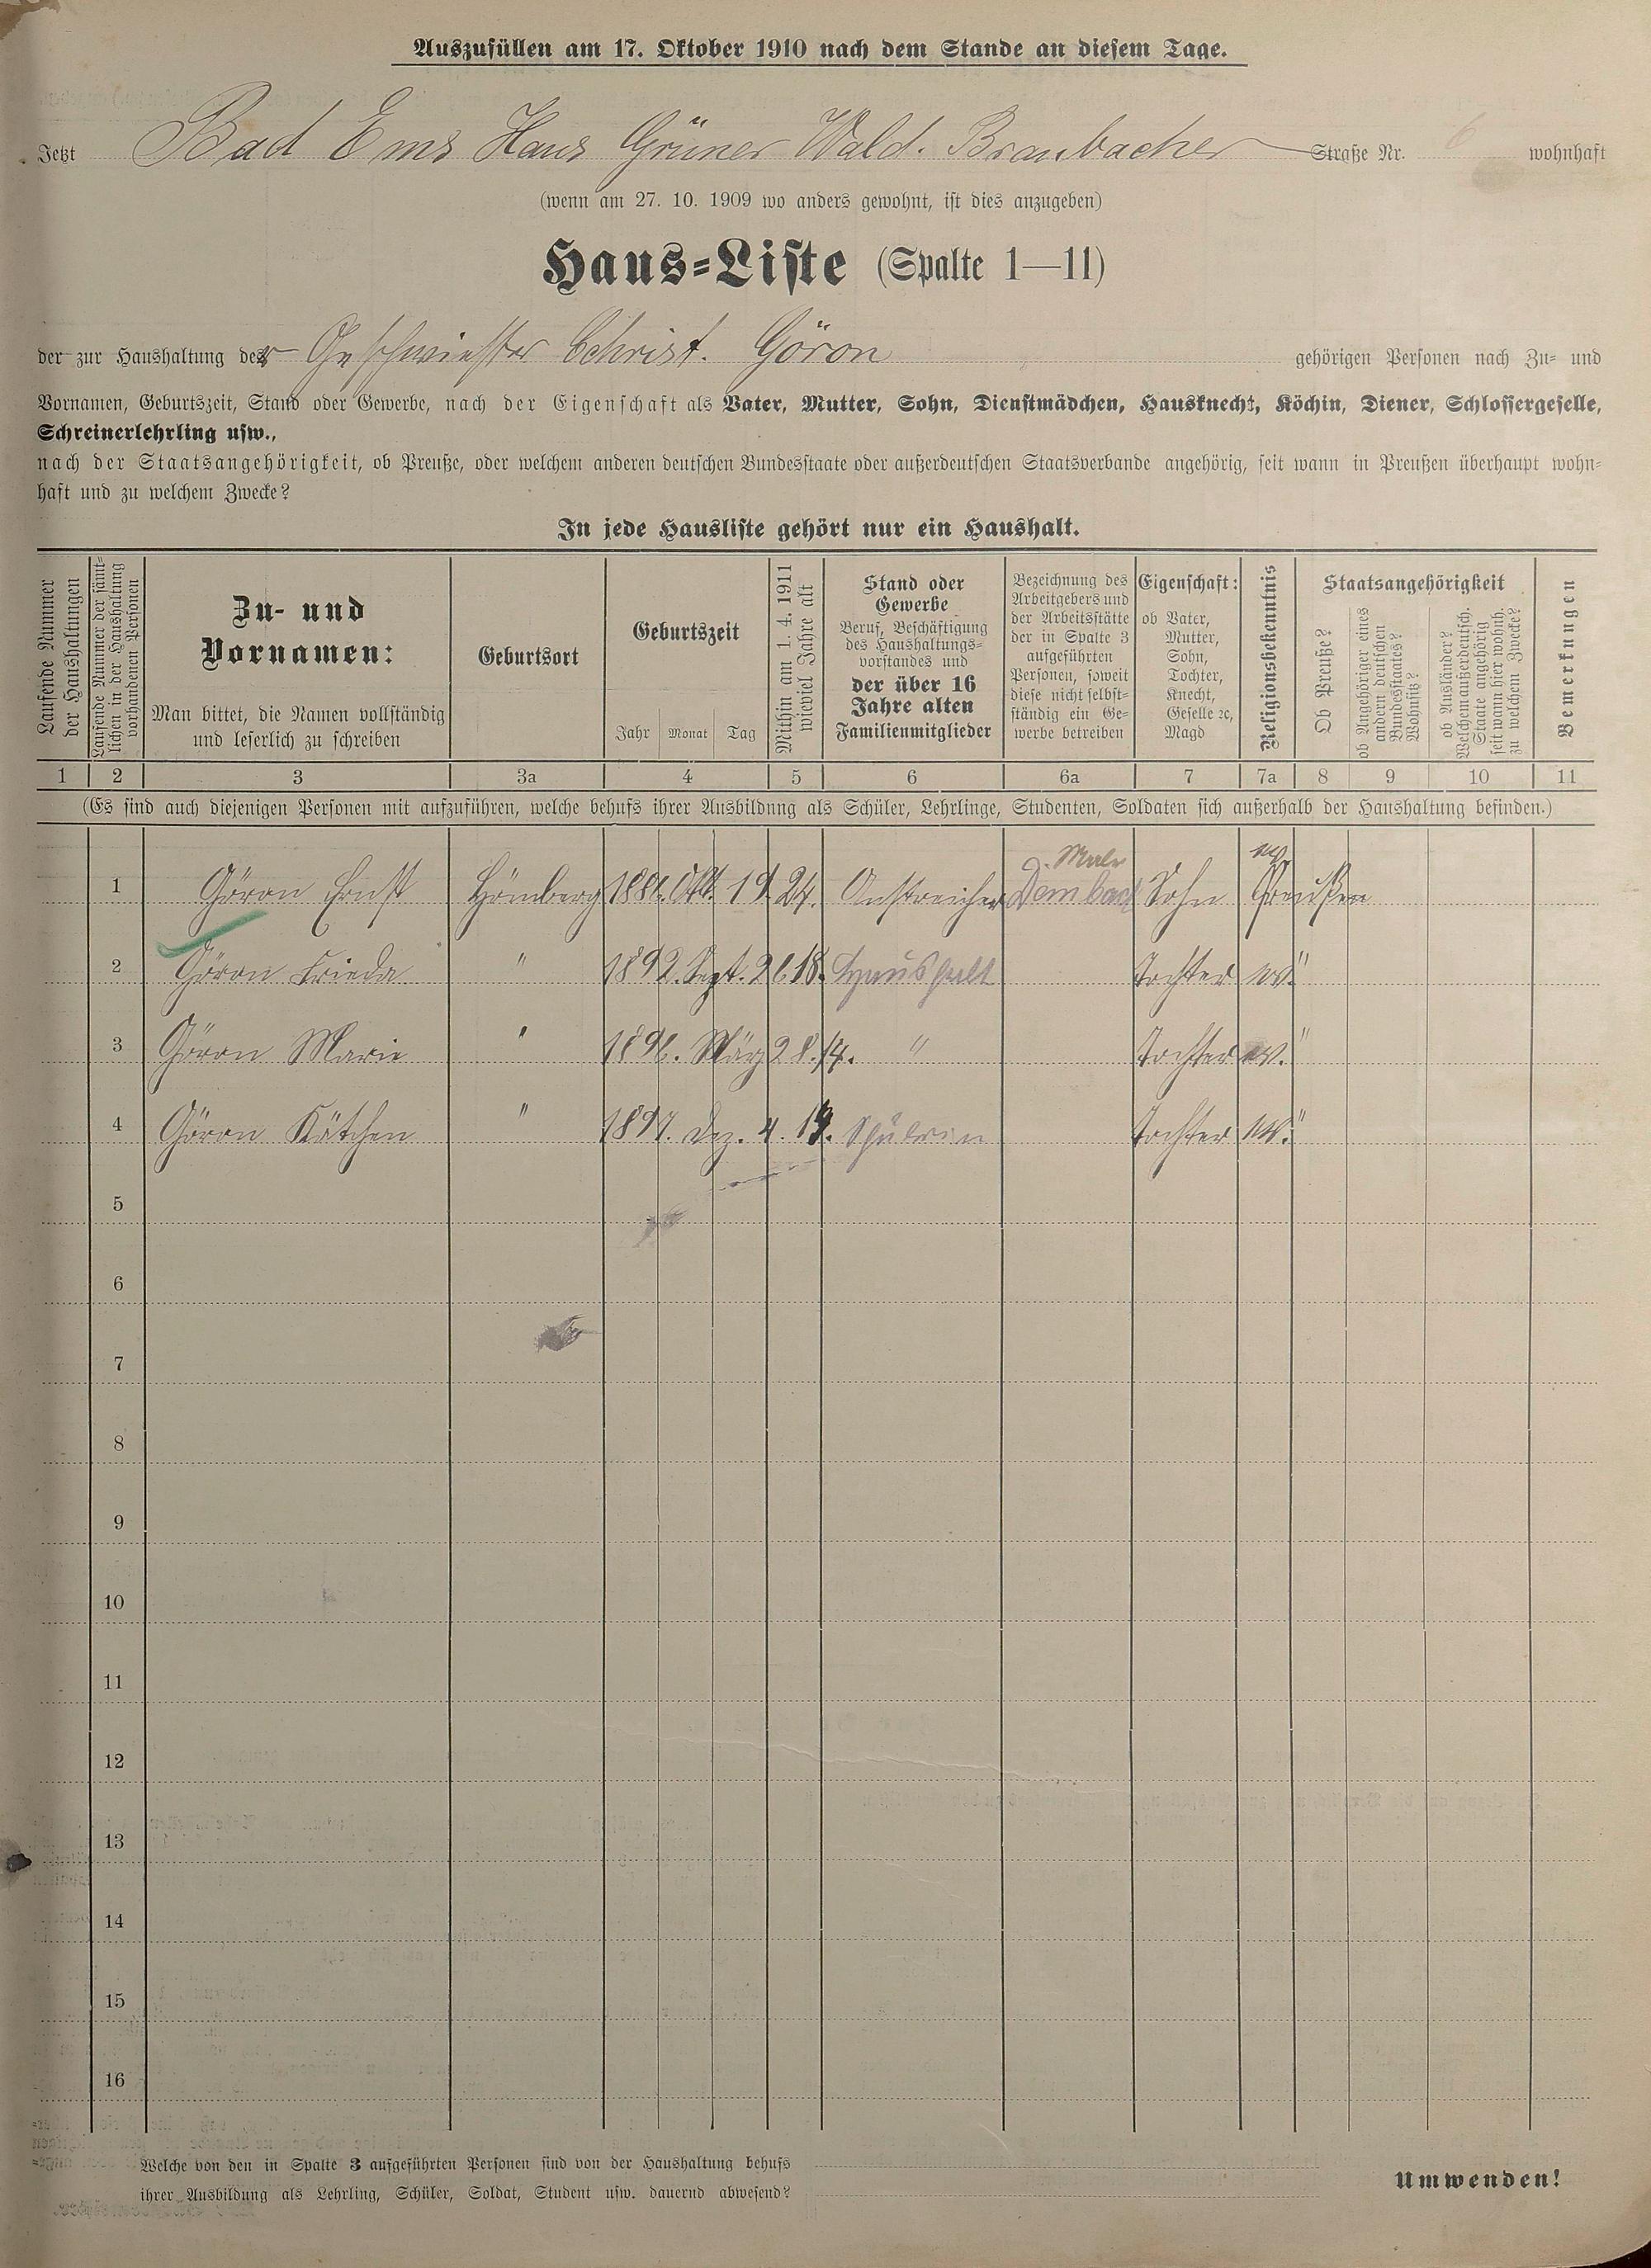 Auszufüllen am 17. Oktober 1910 nach dem Stande an diesem Tage.
Jetzt Bad Ems Haus Grüner Wald. Braubacher Straße Nr. 6 wohnhaft
(wenn am 27. 10. 1909 wo anders gewohnt, ist dies anzugeben)
Haus-Liste (Spalte 1—11)
der zur Haushaltung der Geschwister Christ. Göron gehörigen Personen nach Zu- und
Vornamen, Geburtszeit, Stand oder Gewerbe, nach der Eigenschaft als Vater, Mutter, Sohn, Dienstmädchen, Hausknecht, Köchin, Diener, Schlossergeselle,
Schreinerlehrling usw.,
nach der Staatsangehörigkeit, ob Preuße, oder welchem anderen deutschen Bundesstaate oder außerdeutschen Staatsverbande angehörig, seit wann in Preußen überhaupt wohn-
haft und zu welchem Zwecke?
In jede Hausliste gehört nur ein Haushalt.
Laufende Nummer
der Haushaltungen
Laufende Nummer der sämt-
lichen in der Haushaltung
vorhandenen Personen
Zu- und
Vornamen:
Man bittet, die Namen vollständig
und leserlich zu schreiben
Geburtsort
Geburtszeit
Jahr Monat Tag
Mithin am 1. 4. 1911
wieviel Jahre alt
Stand oder
Gewerbe
Beruf, Beschäftigung
des Haushaltungs-
vorstandes und
der über 16
Jahre alten
Familienmitglieder
Bezeichnung des
Arbeitgebers und
der Arbeitsstätte
der in Spalte 3
aufgeführten
Personen, soweit
diese nicht selbst-
ständig ein Ge-
werbe betreiben
Eigenschaft:
ob Vater,
Mutter,
Sohn,
Tochter,
Knecht,
Geselle ꝛc,
Magd
Religionsbekenntnis
Staatsangehörigkeit
Ob Preuße?
ob Angehöriger eines
andern deutschen
Bundesstaates?
Wohnsitz?
ob Ausländer?
Welchem außerdeutsch.
Staate angehörig
seit wann hier wohnh.
zu welchem Zwecke?
Bemerkungen
1 2 3 3a 4 5 6 6a 7 7a 8 9 10 11
(Es sind auch diejenigen Personen mit aufzuführen, welche behufs ihrer Ausbildung als Schüler, Lehrlinge, Studenten, Soldaten sich außerhalb der Haushaltung befinden.)
1 Göron Ernst Hömberg Okt. 19 24. Anstreicher Sohn ev. Preußen
2 Göron Frieda " 1892. Sept. 26 18. Haushalt Tochter ev. "
3 Göron Marie " 1896. März 28. 14. " Tochter ev. "
4 Göron Kätchen " 1897. Dez. 4. 13. Schülerin Tochter ev. "
5
6
7
8
9
10
11
12
13
14
15
16
Welche von den in Spalte 3 aufgeführten Personen sind von der Haushaltung behufs
ihrer Ausbildung als Lehrling, Schüler, Soldat, Student usw. dauernd abwesend?
Umwenden!